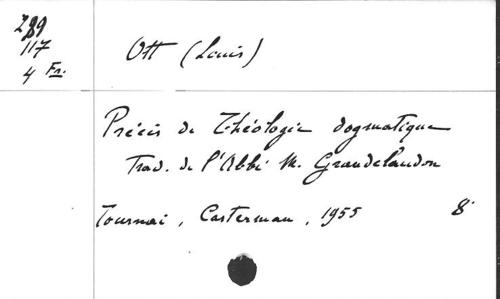 289
117
4 Fr.
Ott (Louis)
Précis de Théologie dogmatique
Trad. de l'Abbé M. Grandclaudon
Tournai, Casterman, 1955 8°